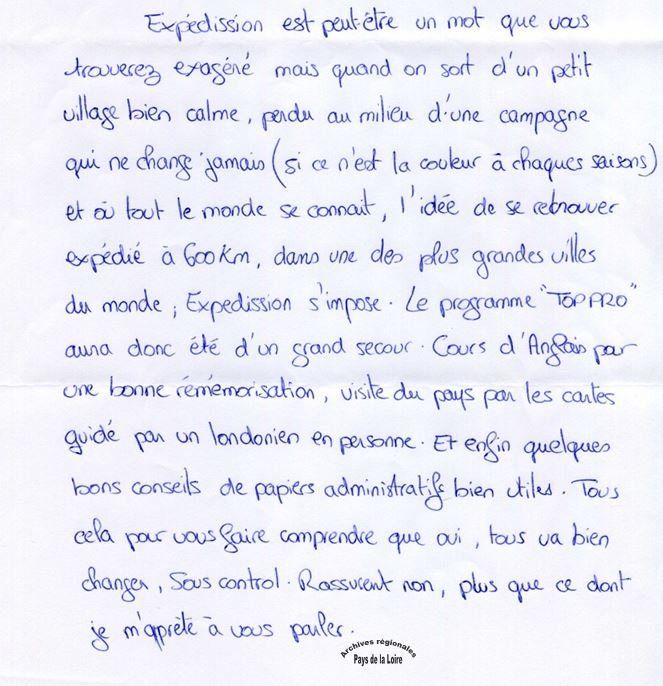 Expédission est peut-être un mot que vous
trouverez exagéré mais quand on sort d'un petit
village bien calme, perdu au milieu d'une campagne
qui ne change jamais (si ce n'est la couleur à chaques saisons)
et où tout le monde se connait, l'idée de se retrouver
expédié à 600 Km, dans une des plus grandes villes
du monde ; Expedission s'impose. Le programme "TOP PRO"
aura donc été d'un grand secour. Cours d'Anglais par
une bonne rémémorisation, visite du pays par les cartes
guidé par un londonien en personne. Et enfin quelques
bons conseils de papiers administratifs bien utiles. Tous
cela pour vous faire comprendre que oui, tous va bien
changer, Sous control. Rassurent non, plus que ce dont
je m'apprète à vous parler.
Archives régionales
Pays de la Loire